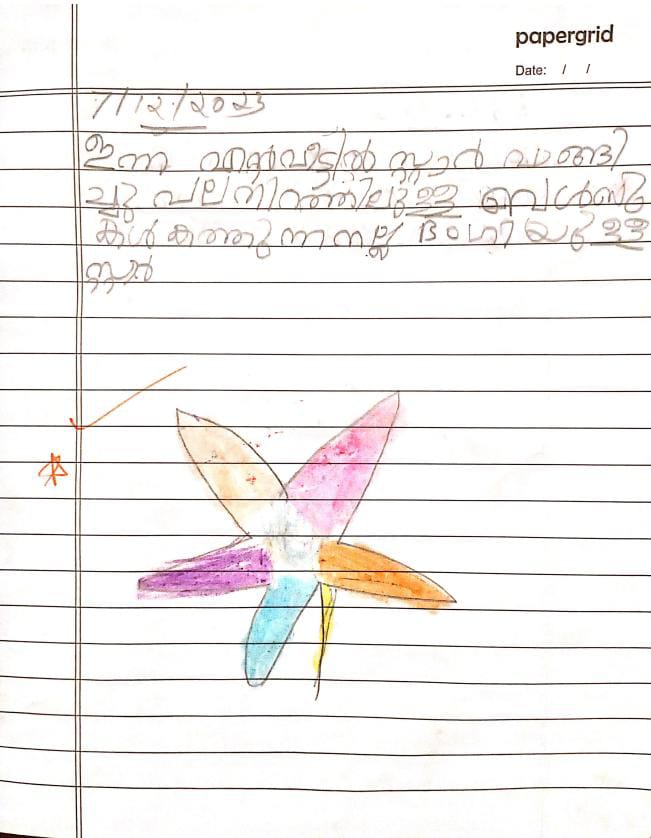 papergrid
Date: / /
7/12/2023
ഇന്ന് എൻ്റെ വീട്ടിൽ സ്റ്റാർ വാങ്ങി
ച്ചു പല നിറത്തിലുള്ള ബൾബു
കൾ കത്തുന്ന നല്ല ഭംഗിയുള്ള
സ്റ്റാർ